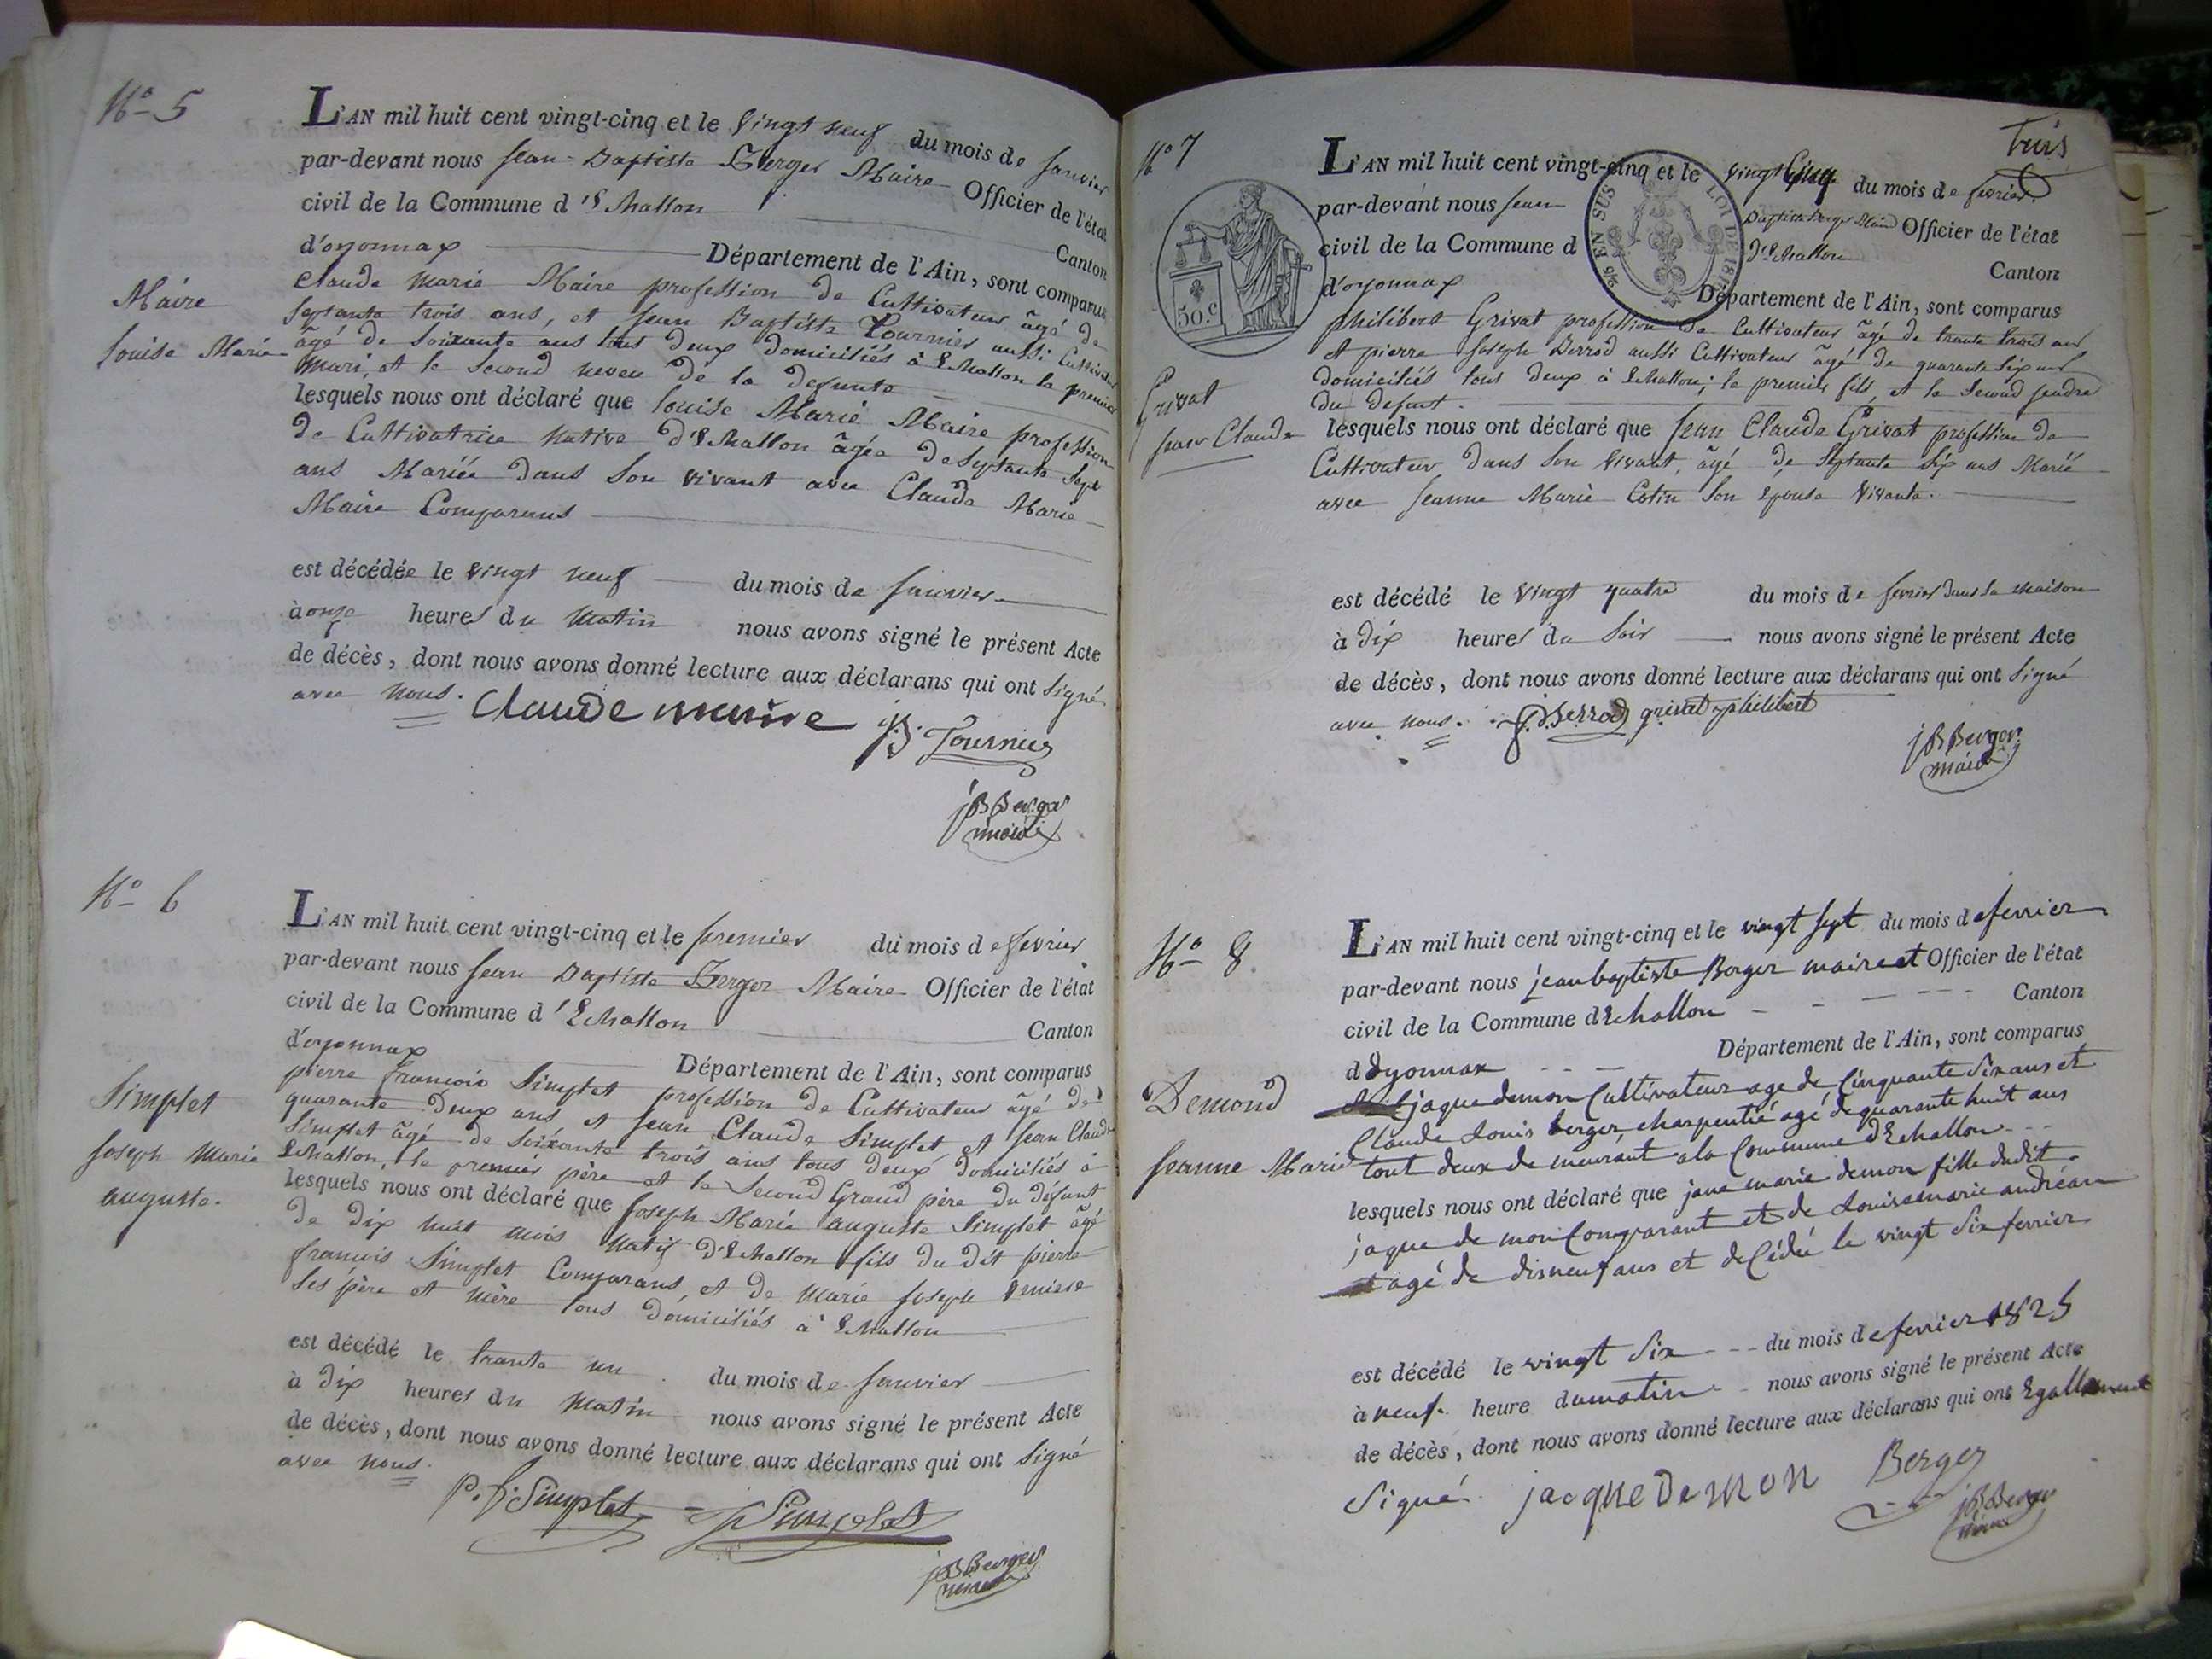 No 5
L'AN mil huit cent vingt-cinq et le vingt neuf du mois de janvier
par-devant nous jean-Baptiste Berger Maire Officier de l'état
civil de la Commune d'Echallon Canton
d'oyonnax Département de l'Ain, sont comparus
Claude Marie Maire profession de Cultivateur âgé de
septante trois ans, et jean Baptiste Tournier aussi Cultivateur
âgé de soixante ans tous deux domiciliés à Echallon le premier
mari, et le second neveu de la defunte
Maire
louise Marie
lesquels nous ont déclaré que louise Marie Maire profession
de Cultivatrice native d'Echallon âgée de septante sept
ans Mariée dans son vivant avec Claude Marie
Maire Comparans
est décédée le vingt neuf du mois de janvier
à onze heures du matin nous avons signé le présent Acte
de décès, dont nous avons donné lecture aux déclarans qui ont signé
avec nous. Claude maire JB. Tournier
JB Berger
maire
No 6
L'AN mil huit cent vingt-cinq et le premier du mois de fevrier
par-devant nous jean Baptiste Berger Maire Officier de l'état
civil de la Commune d'Echallon Canton
d'oyonnax Département de l'Ain, sont comparus
pierre françois Simplet profession de Cultivateur âgé de
quarante deux ans et jean Claude Simplet et jean Claude
Simplet âgé de soixante trois ans tous deux domiciliés à
Echallon, le premier père et le second Grand père du défunt
Simplet
joseph Marie
auguste.
lesquels nous ont déclaré que joseph Marie auguste Simplet âgé
de dix huit mois natif d'Echallon fils du dit pierre
françois Simplet Comparans, et de Marie joseph
ses père et mère tous domiciliés à Echallon
est décédé le trante un du mois de janvier
à dix heures du matin nous avons signé le présent Acte
de décès, dont nous avons donné lecture aux déclarans qui ont signé
avec nous.
P. f. Simplet Simplet
JB Berger
maire
trois
No 7
L'AN mil huit cent vingt-cinq et le vingt cinq du mois de fevrier
par-devant nous jean Baptiste Berger Maire Officier de l'état
civil de la Commune d d'Echallon Canton
d'oyonnax Département de l'Ain, sont comparus
50.C
EN SUS LOI DE
philibert Grivat profession de Cultivateur âgé de trante trois ans
et pierre joseph Berrod aussi Cultivateur âgé de quarante six ans
domiciliés tous deux à Echallon; le premier fils, et le second jendre
du defunt.
Grivat
jean Claude
lesquels nous ont déclaré que jean Claude Grivat profession de
Cultivateur dans son vivant, âgé de septante six ans Marié
avec jeanne Marie Cotin son epouse vivante.
est décédé le vingt quatre du mois de fevrier dans sa maison
à dix heures du soir nous avons signé le présent Acte
de décès, dont nous avons donné lecture aux déclarans qui ont signé
avec nous. Berrod grivat philibert
JB Berger
maire
No 8.
L'AN mil huit cent vingt-cinq et le vingt sept du mois de fevrier
par-devant nous jean baptiste Berger maire et Officier de l'état
civil de la Commune d Echallon Canton
d Oyonnax Département de l'Ain, sont comparus
jaque demon Cultivateur age de Cinquante six ans et
Claude Louis berger, charpentié agé de quarante huit ans
tout deux de meurant a la Commune d'Echallon
Demond
jeanne Marie
lesquels nous ont déclaré que jane marie demon fille dudit
jaque de mon Comparant et de Louise marie andréan
agé de disneuf ans et deCédé le vingt six fevrier
est décédé le vingt six du mois de fevrier 1825
à neuf heure du matin nous avons signé le présent Acte
de décès, dont nous avons donné lecture aux déclarans qui ont Egallement
Signé. jacque Demon Berger
JB Berger
maire